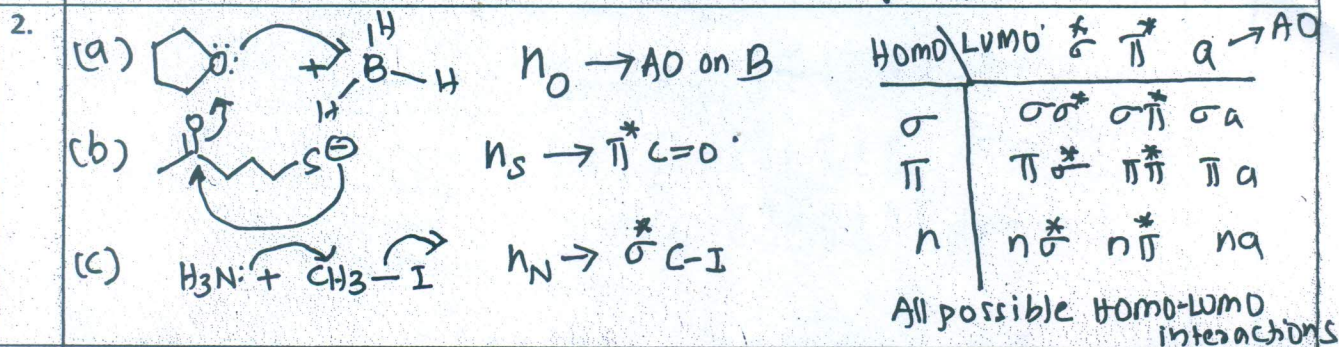 2.
(a) O: + B H H H n_O → AO on B
(b) O S⊖ n_S → π* C=O
(c) H3N: + CH3—I n_N → σ* C-I
HOMO \ LUMO σ* π* a → AO
σ σσ* σπ* σa
π πσ* ππ* πa
n nσ* nπ* na
All possible HOMO-LUMO
interactions